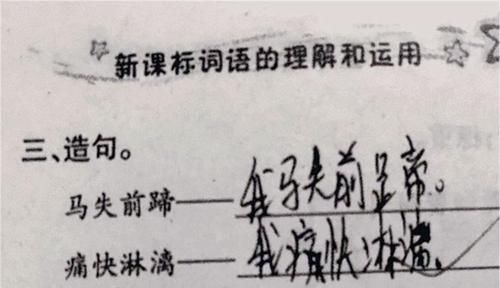 新课标词语的理解和运用
三、造句。
马失前蹄——我马失前蹄。
痛快淋漓——我痛快淋漓